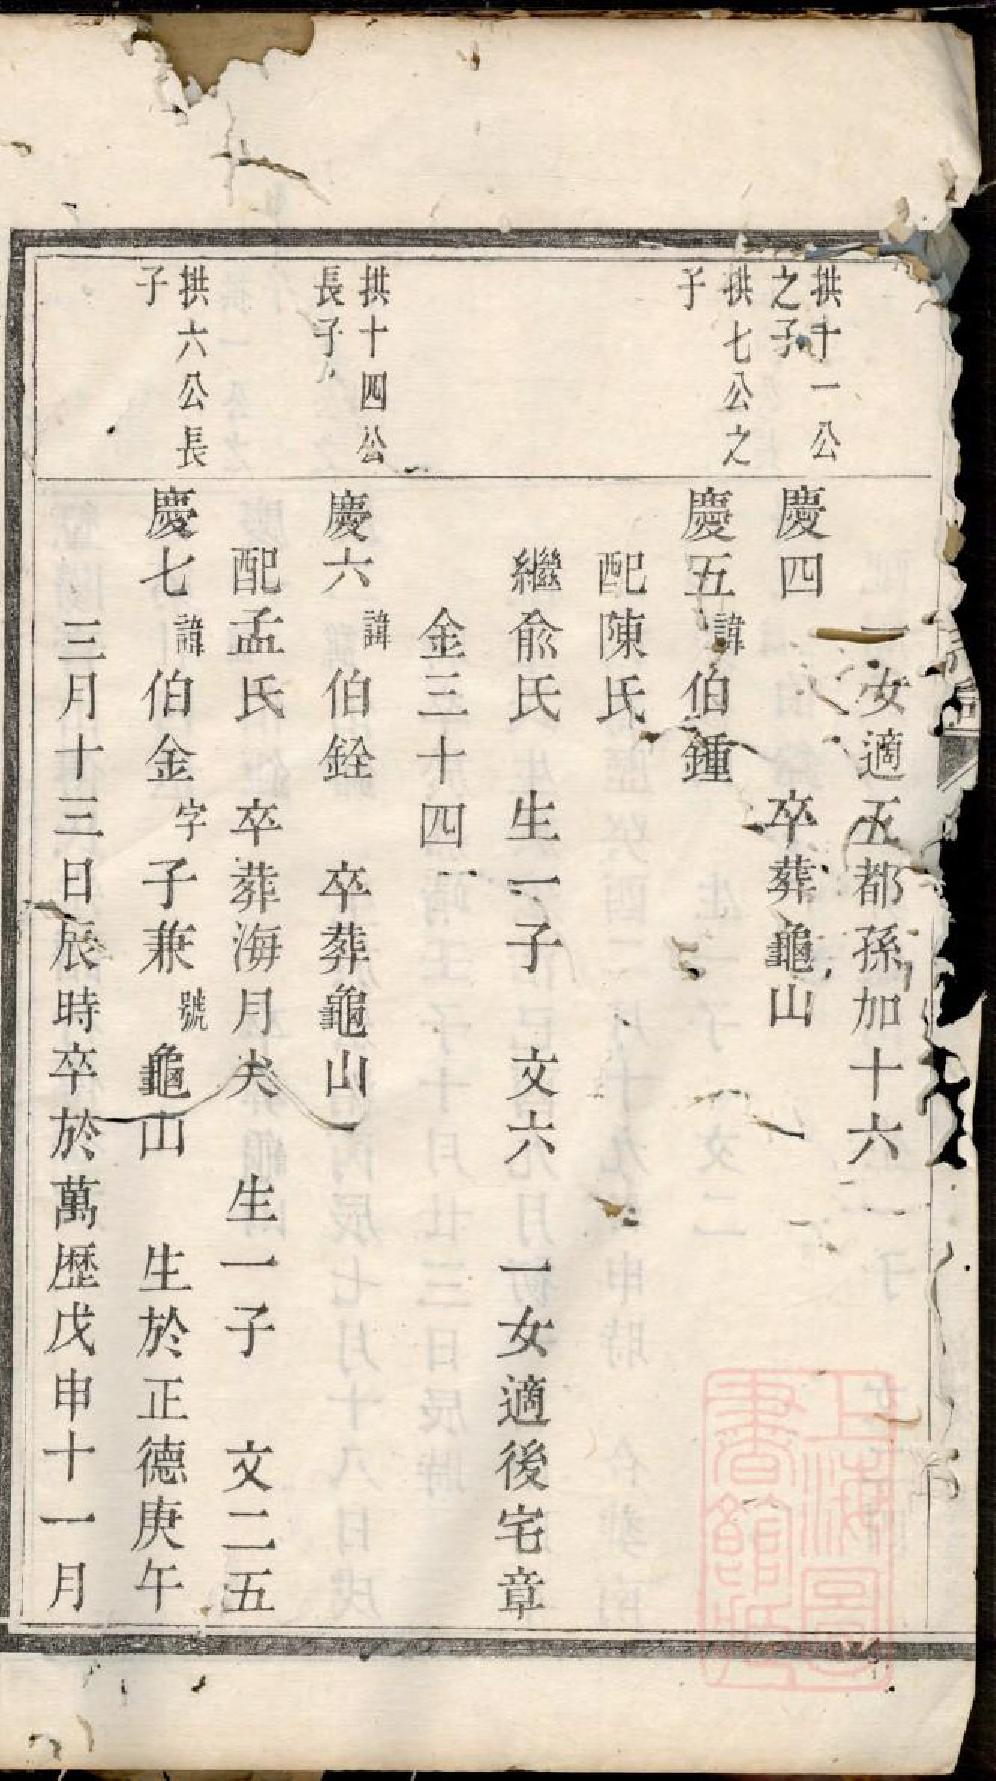 一女適五都孫加十六
拱十一公
之子
慶四 卒葬龜山
拱七公之
子
慶五諱伯鍾
配陳氏
繼兪氏 生一子 文六 一女適後宅章
金三十四
拱十四公
長子
慶六諱伯銓 卒葬龜山
配孟氏 卒葬海月尖 生一子 文二五
拱六公長
子
慶七諱伯金字子兼號龜山 生於正德庚午
三月十三日辰時卒於萬歷戊申十一月
上海圖
書館藏